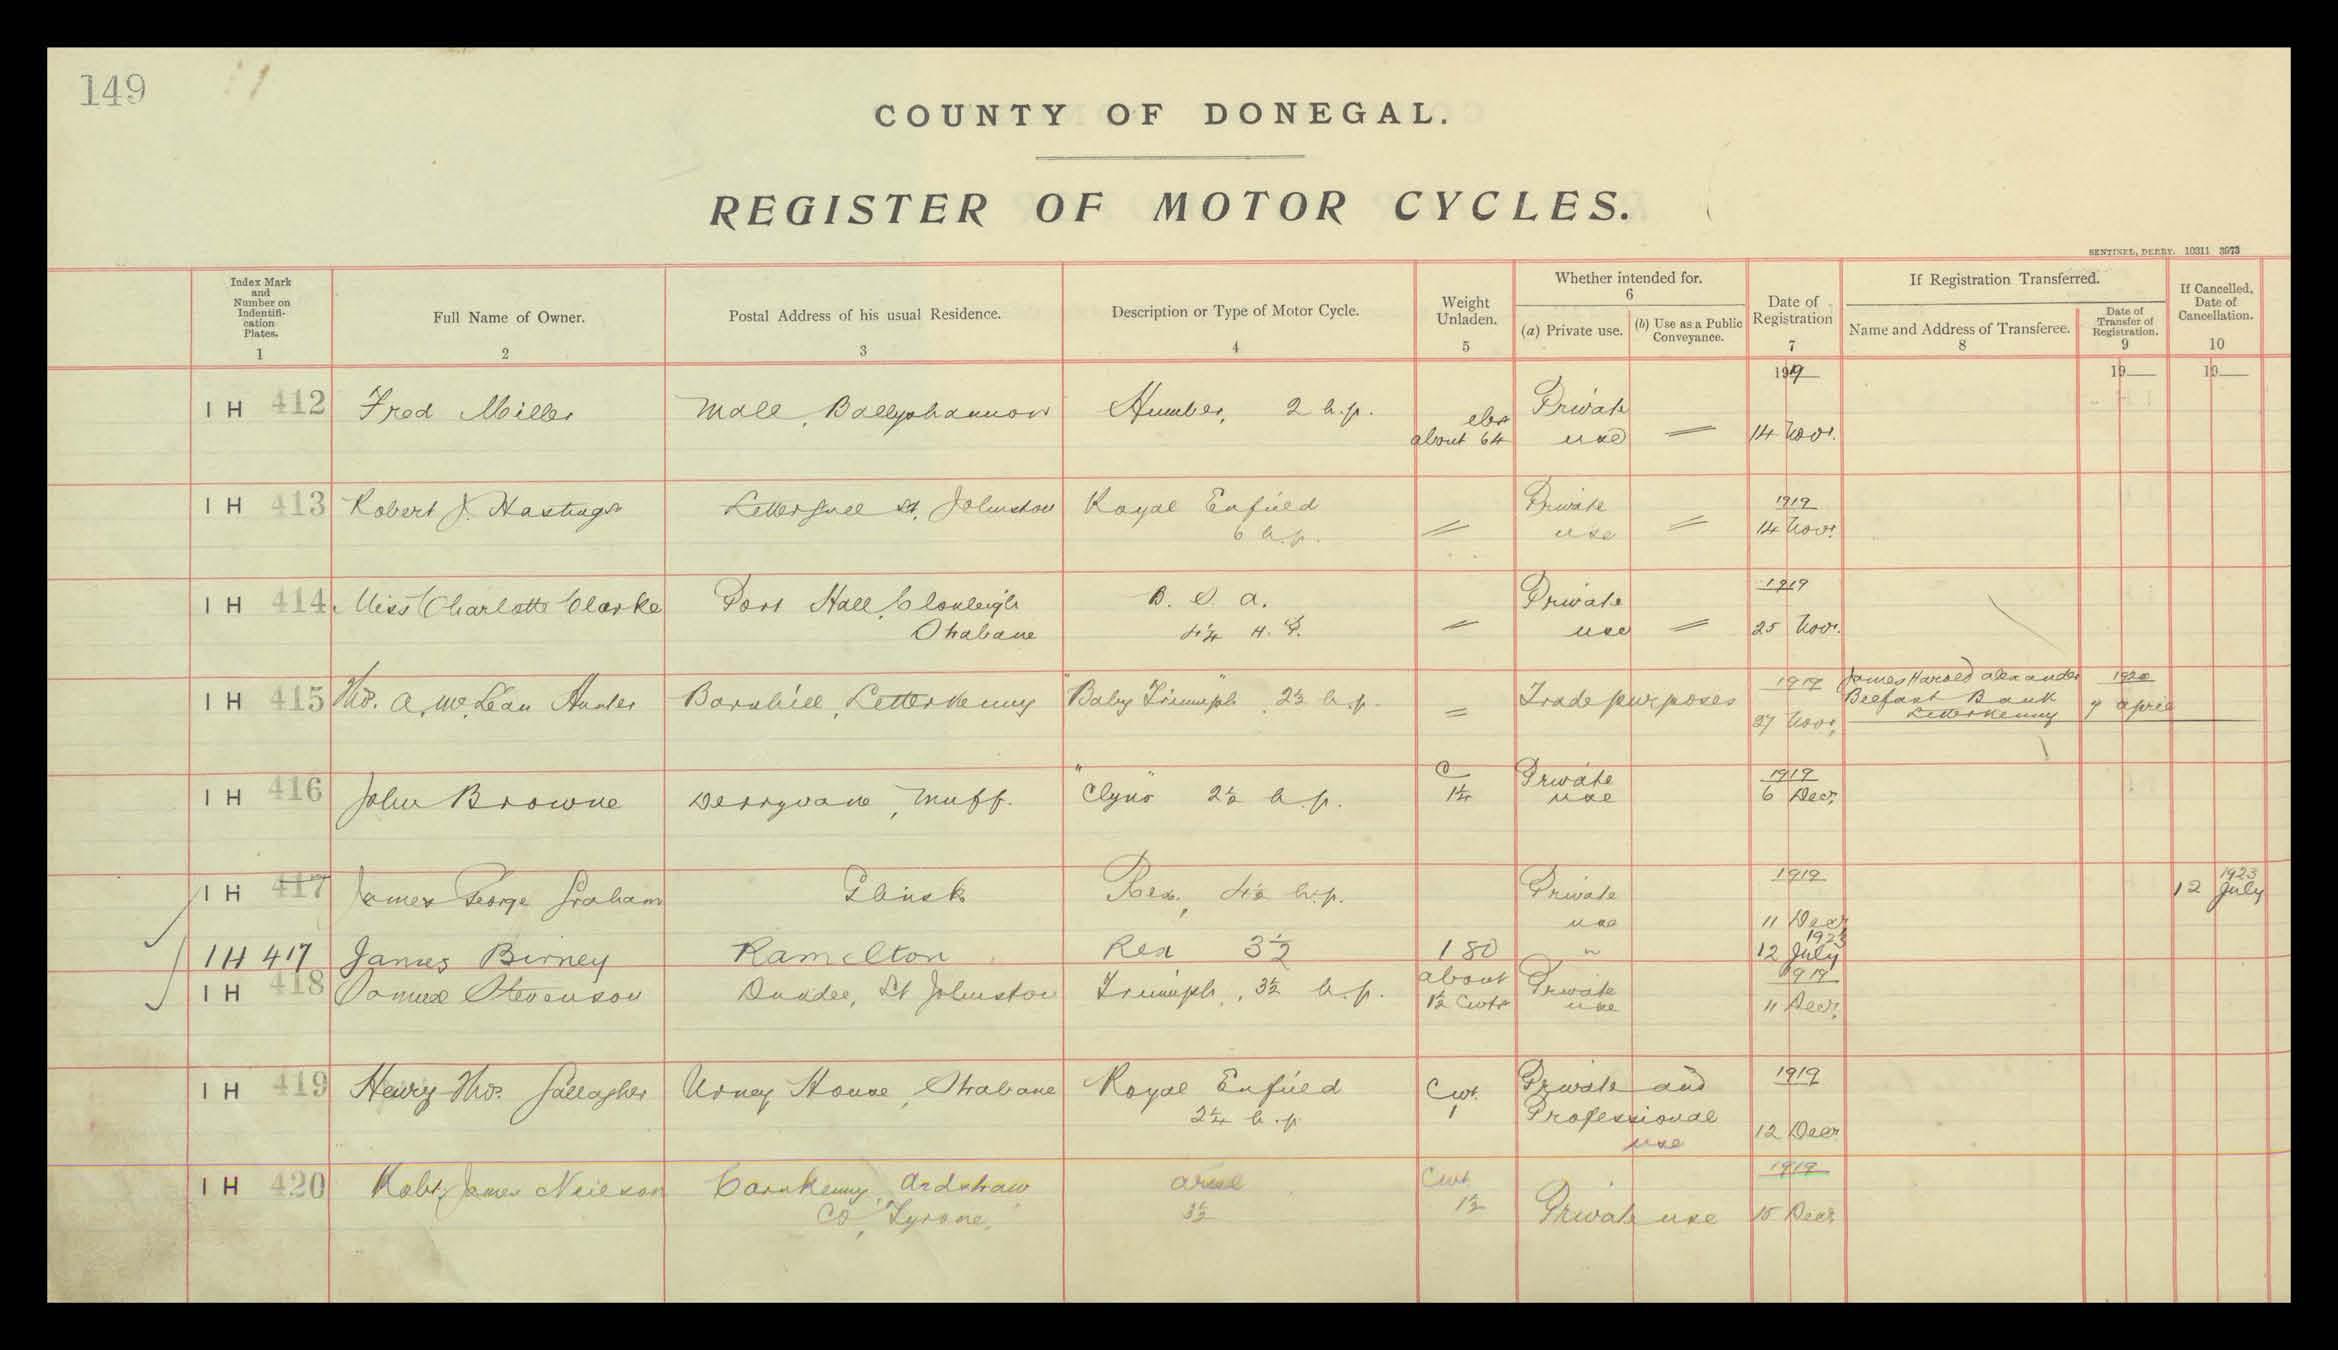 149
COUNTY OF DONEGAL.
REGISTER OF MOTOR CYCLES.
SENTINEL, DERRY. 10311 3973
Index Mark and Number on Indentifi-cation Plates. 1
Full Name of Owner. 2
Postal Address of his usual Residence. 3
Description or Type of Motor Cycle. 4
Weight Unladen. 5
Whether intended for. 6
(a) Private use.
(b) Use as a Public Conveyance.
Date of Registration 7
If Registration Transferred.
Name and Address of Transferee. 8
Date of Transfer of Registration. 9
If Cancelled, Date of Cancellation. 10
1919 19 19
IH 412 Fred Miller Mall, Ballyshannon Humber, 2 h.p. lbs Private
about 64 use = 14 Novr.
IH 413 Robert J. Hastings St. Johnston Royal Enfield Private 1919
6 h.p. = use = 14 Novr.
IH 414 Miss Charlotte Clarke Port Hall, Clonleigh B. S. A. Private 1919
Strabane 4¼ H.P. = use = 25 Novr.
IH 415 Thos. A. McLean Hunter Barnhill, Letterkenny "Baby Triumph" 2½ h.p. = Trade purposes 1919 27 Novr.
James Harold Alexander 1920
Belfast Bank 7 April
Letterkenny
IH 416 John Browne Derryvane, Muff. "Clyno" 2½ h.p. C Private 1919
1¼ use 6 Decr.
IH 417 James George Graham Glinsk Rex, 4½ h.p. Private 1919 1923
use 11 Decr 12 July
IH 417 James Birney Ramelton Rex 3½ 180 " 1923 12 July
IH 418 Samuel Stevenson Dundee, St Johnston Triumph, 3½ h.p. about Private 1919
1½ Cwts use 11 Decr.
IH 419 Henry Thos. Gallagher Urney House, Strabane Royal Enfield Cwt. Private and 1919
2¼ h.p. 1 Professional use 12 Decr
IH 420 Robt. James Neilson Carnkenny, Ardstraw Ariel Cwt 1919
Co, Tyrone, 3½ 1½ Private use 15 Decr